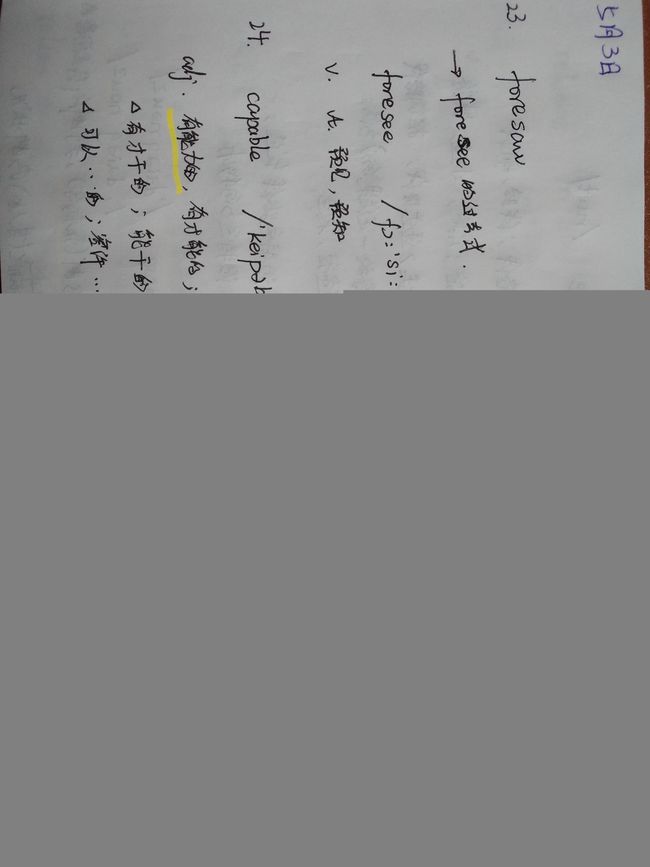 5月3日
23. foresaw
→ foresee 的过去式.
foresee /fɔ:'si:
v. vt. 预见, 预知
24. capable /'keipəb
adj. 有能力的, 有才能的;
△ 有才干的; 能干的
△ 可以…的; 容许…